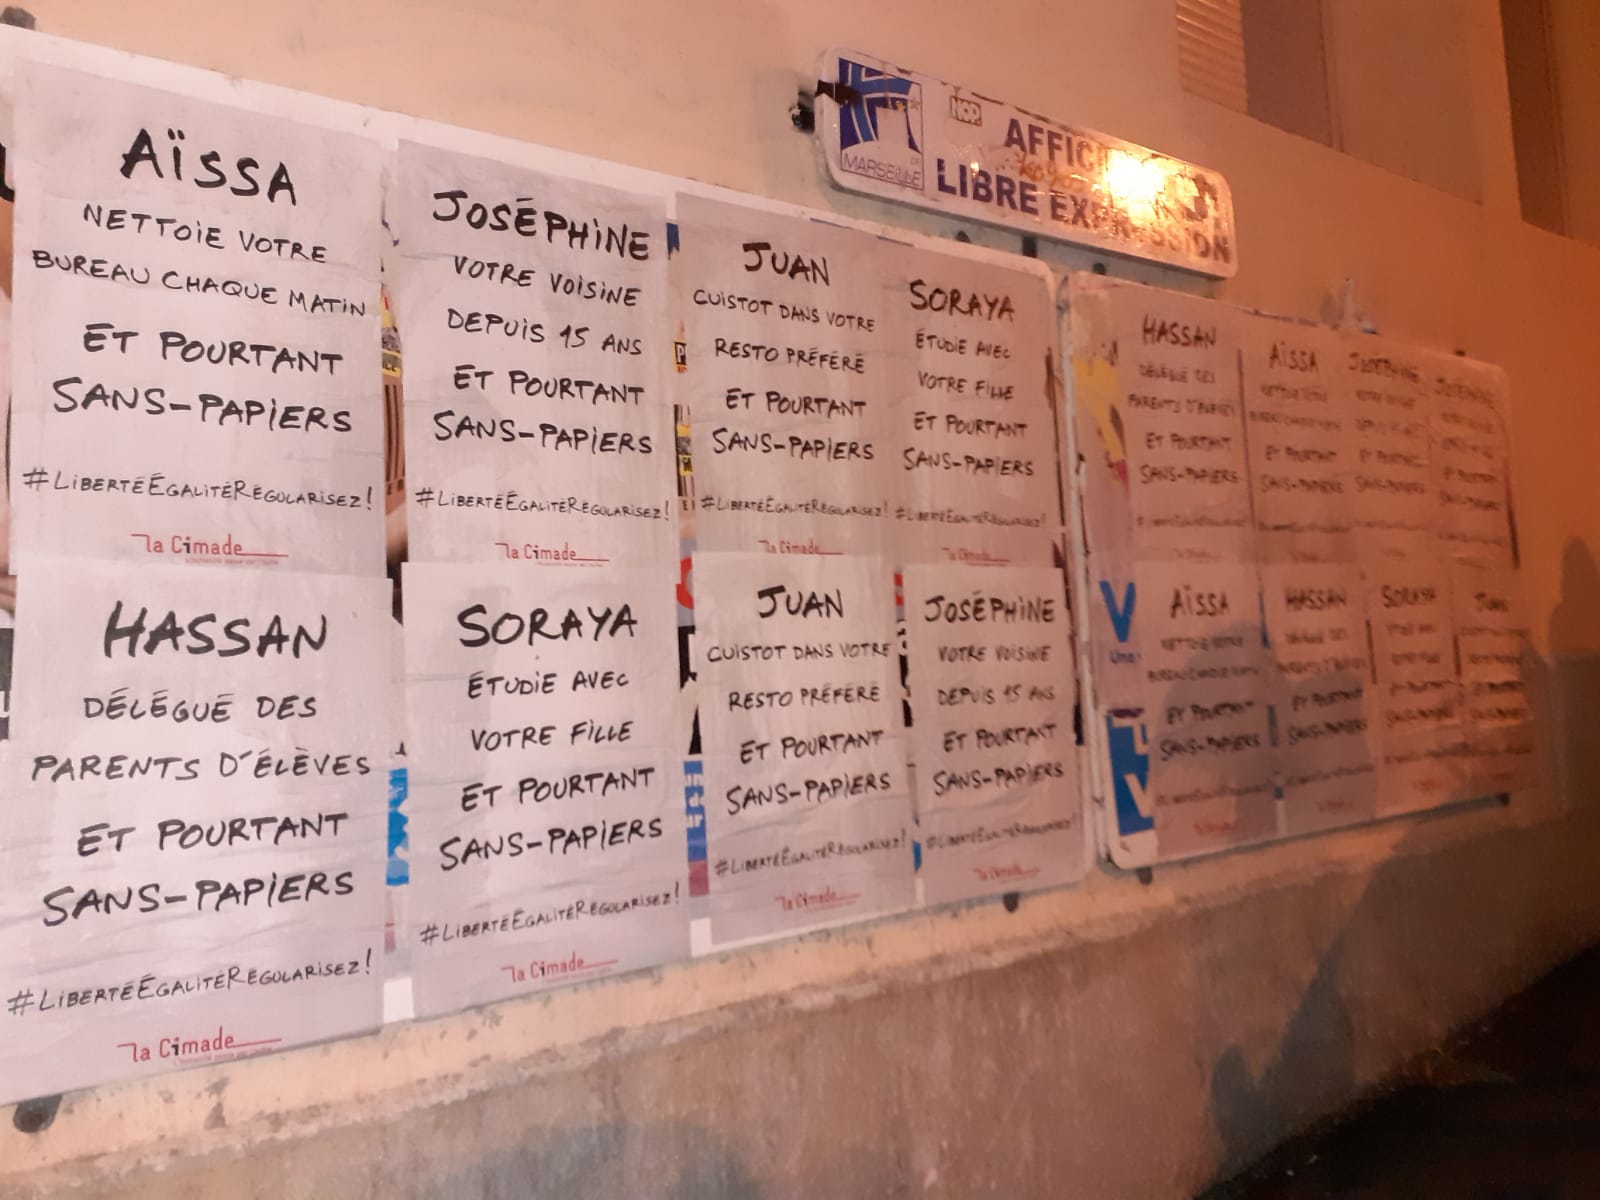 AÏSSA
NETTOIE VOTRE
BUREAU CHAQUE MATIN
ET POURTANT
SANS-PAPIERS
#LIBERTÉÉGALITÉRÉGULARISEZ!
la Cimade
JOSÉPHINE
VOTRE VOISINE
DEPUIS 15 ANS
ET POURTANT
SANS-PAPIERS
#LIBERTÉÉGALITÉRÉGULARISEZ!
la Cimade
JUAN
CUISTOT DANS VOTRE
RESTO PRÉFÉRÉ
ET POURTANT
SANS-PAPIERS
#LIBERTÉÉGALITÉRÉGULARISEZ!
la Cimade
SORAYA
ÉTUDIE AVEC
VOTRE FILLE
ET POURTANT
SANS-PAPIERS
#LIBERTÉÉGALITÉRÉGULARISEZ!
la Cimade
VILLE DE MARSEILLE
NOP
LIBRE EXPRESSION
HASSAN
DÉLÉGUÉ DES
PARENTS D'ÉLÈVES
ET POURTANT
SANS-PAPIERS
AÏSSA
ET POURTANT
SANS-PAPIERS
JOSÉPHINE
ET POURTANT
SANS-PAPIERS
JOSÉPHINE
ET POURTANT
SANS-PAPIERS
HASSAN
DÉLÉGUÉ DES
PARENTS D'ÉLÈVES
ET POURTANT
SANS-PAPIERS
#LIBERTÉÉGALITÉRÉGULARISEZ!
la Cimade
SORAYA
ÉTUDIE AVEC
VOTRE FILLE
ET POURTANT
SANS-PAPIERS
#LIBERTÉÉGALITÉRÉGULARISEZ!
la Cimade
JUAN
CUISTOT DANS VOTRE
RESTO PRÉFÉRÉ
ET POURTANT
SANS-PAPIERS
#LIBERTÉÉGALITÉRÉGULARISEZ!
la Cimade
JOSÉPHINE
VOTRE VOISINE
DEPUIS 15 ANS
ET POURTANT
SANS-PAPIERS
#LIBERTÉÉGALITÉRÉGULARISEZ!
la Cimade
AÏSSA
NETTOIE VOTRE
BUREAU CHAQUE MATIN
ET POURTANT
SANS-PAPIERS
HASSAN
DÉLÉGUÉ DES
PARENTS D'ÉLÈVES
ET POURTANT
SANS-PAPIERS
SORAYA
ET POURTANT
SANS-PAPIERS
JUAN